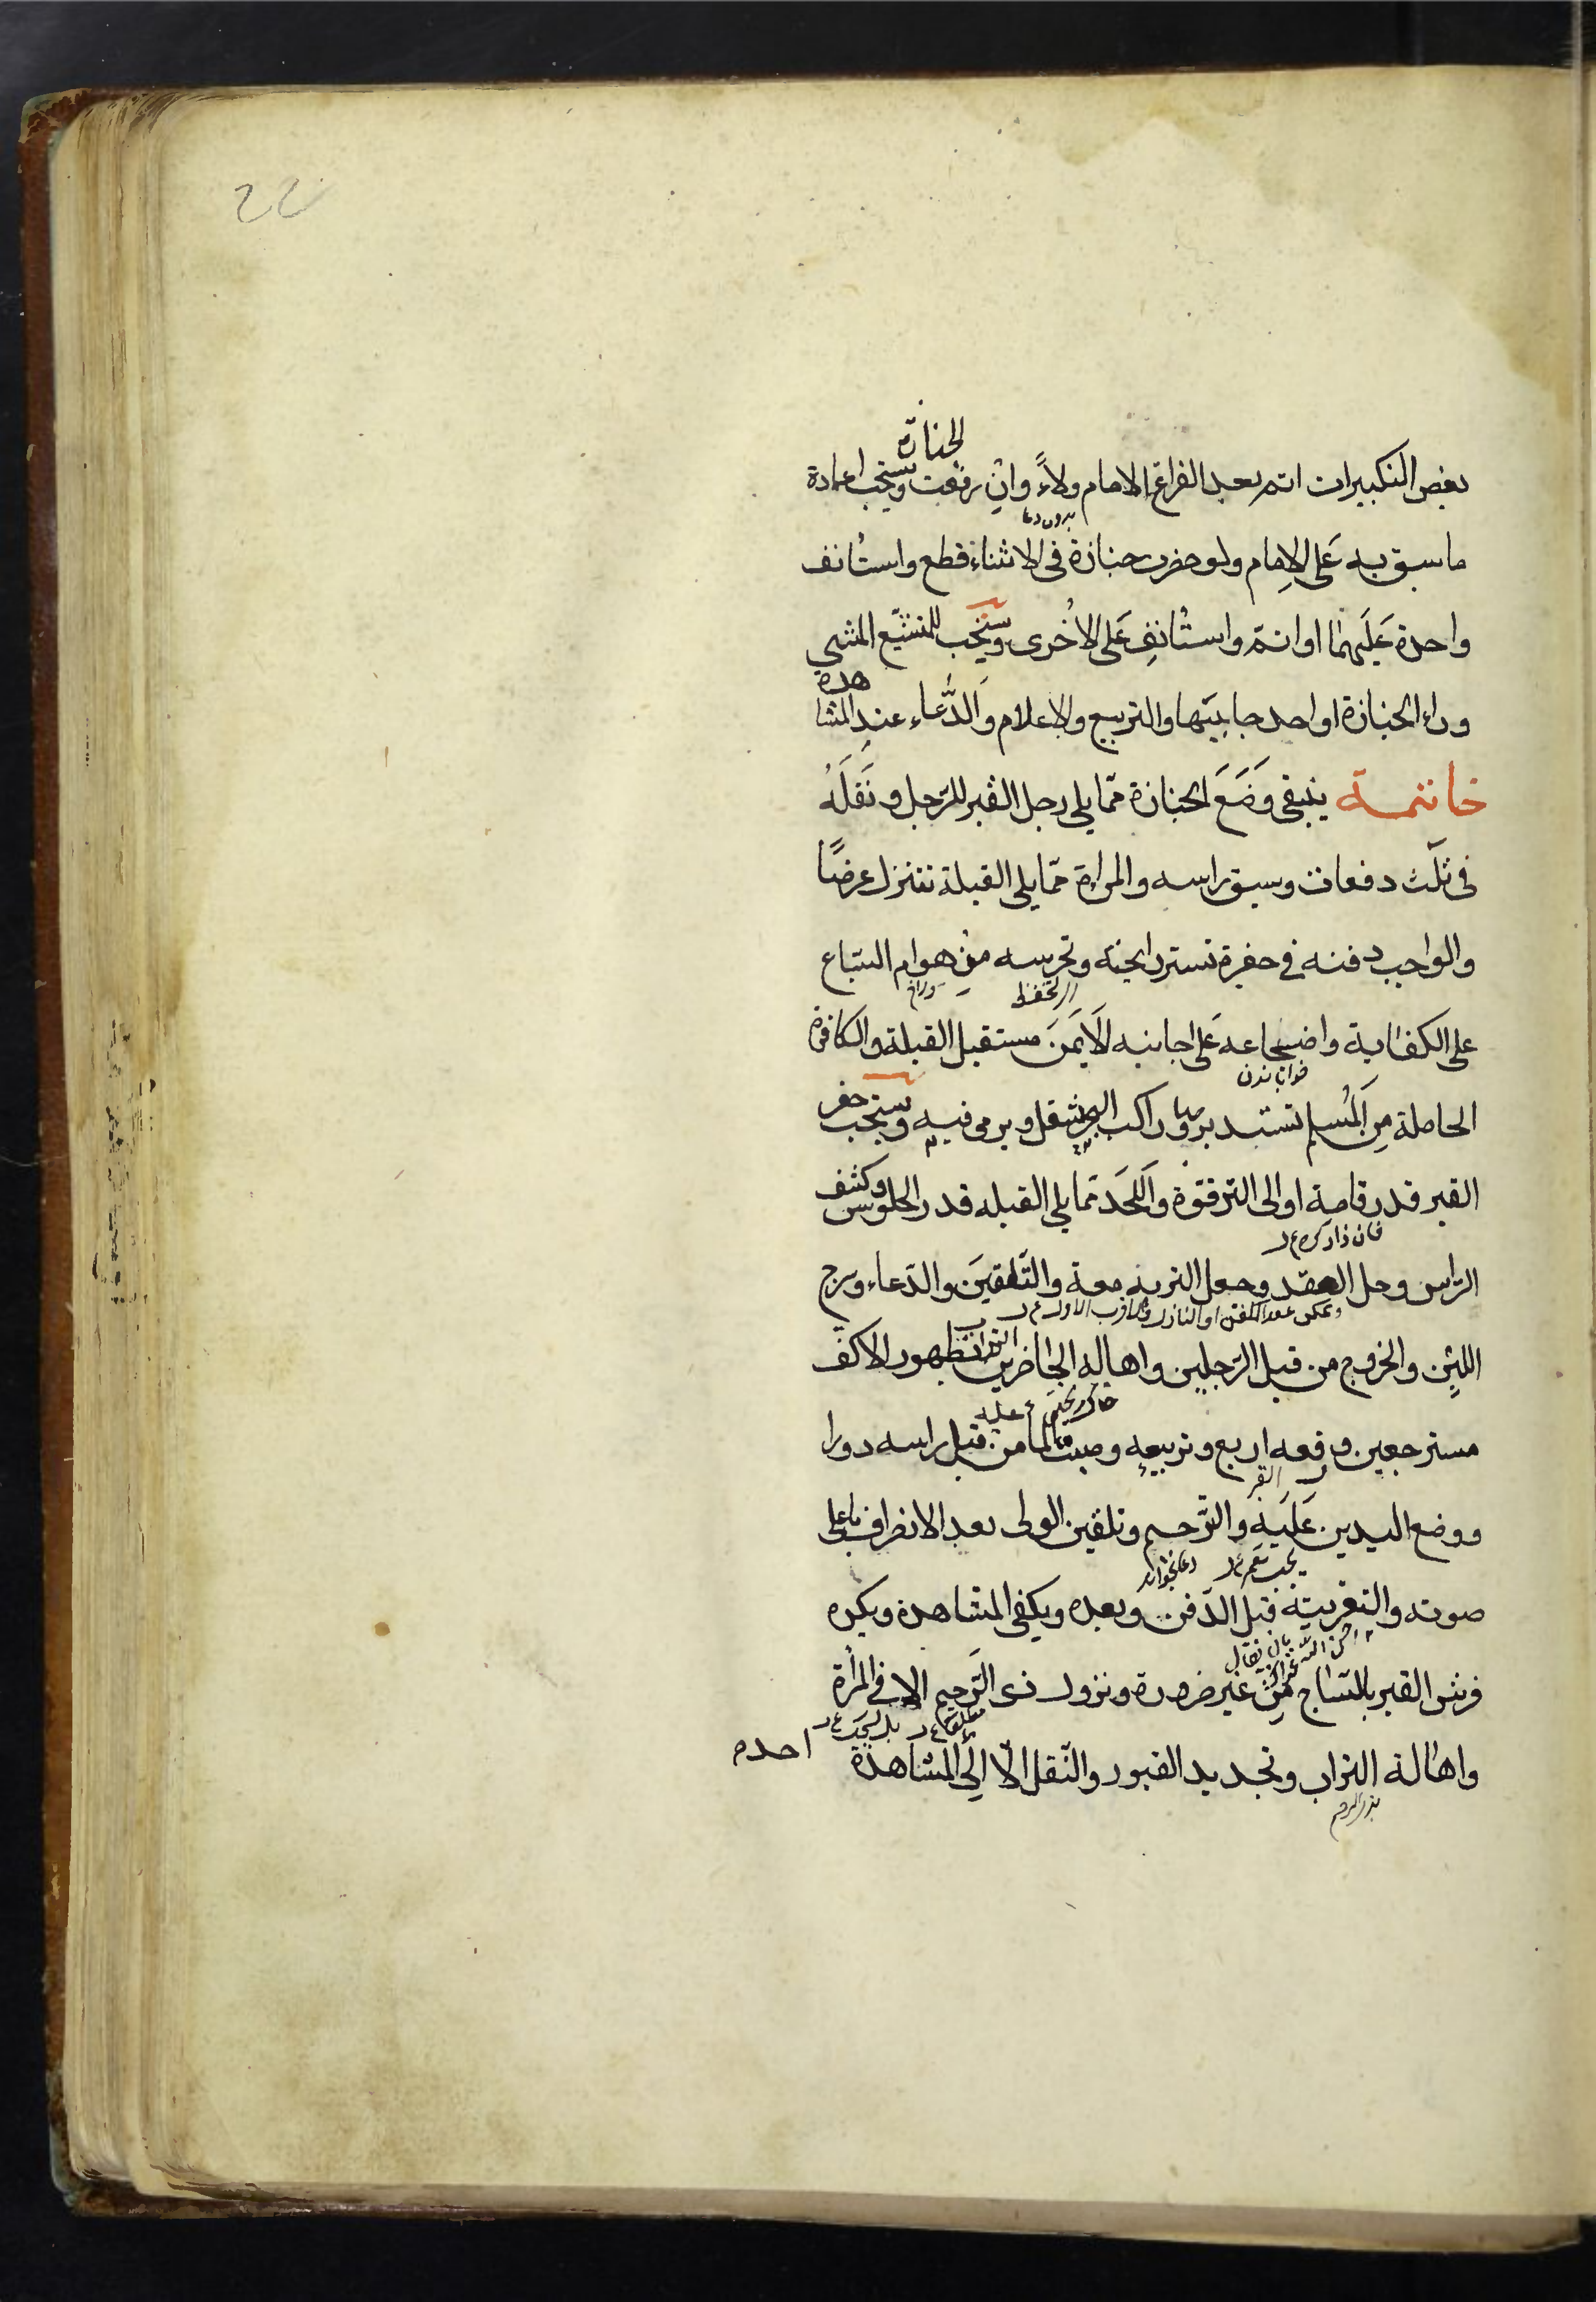 22
بعض التكبيرات اتم بعد الفراغ الامام ولاءً وان رفعت الجنازة ويستحب اعادة
بدون دعا
ما سبق به على الامام ولو حضرت جنازة في الاثناء قطع واستأنف
واحدة عليهما او اتم واستأنف على الاخرى ويستحب للمشيع المشي
وراء الجنازة او احد جانبيها والتربيع والاعلام والدعاء عند المشاهدة
خاتمة ينبغي وضع الجنازة مما يلي رجل القبر للرجل ونقله
في ثلث دفعات وسبق راسه والمراة مما يلي القبلة تنزل عرضًا
والواجب دفنه في حفرة تستر رايحته وتحرسه من هوام السباع
على الكفاية واضجاعه على جانبه الايمن مستقبل القبلة والكافرة
الحاملة من المسلم تستدبر وراكب البحر يثقل ويرمى فيه ويستحب حفر
القبر قدر قامة او الى الترقوة واللحد مما يلي القبله قدر الجلوس وكشف
الراس وحل العقد وجعل التربة معه والتلقين والدعاء وشرج
اللبن والخروج من قبل الرجلين واهاله الحاضرين التراب بظهور الاكف
مسترجعين ورفعه اربع وتربيعه وصب الما من قبل راسه دورا
القبر
ووضع اليدين عليه والترحم وتلقين الولى بعد الانصراف باعلى
صوته والتعزية قبل الدفن وبعده ويكفى المشاهدة ويكره
فرش القبر بالساج من غير ضرورة ونزول ذي الرحم الا في المرأة
واهالة التراب وتجديد القبور والنقل الا الى المشاهدة
احده